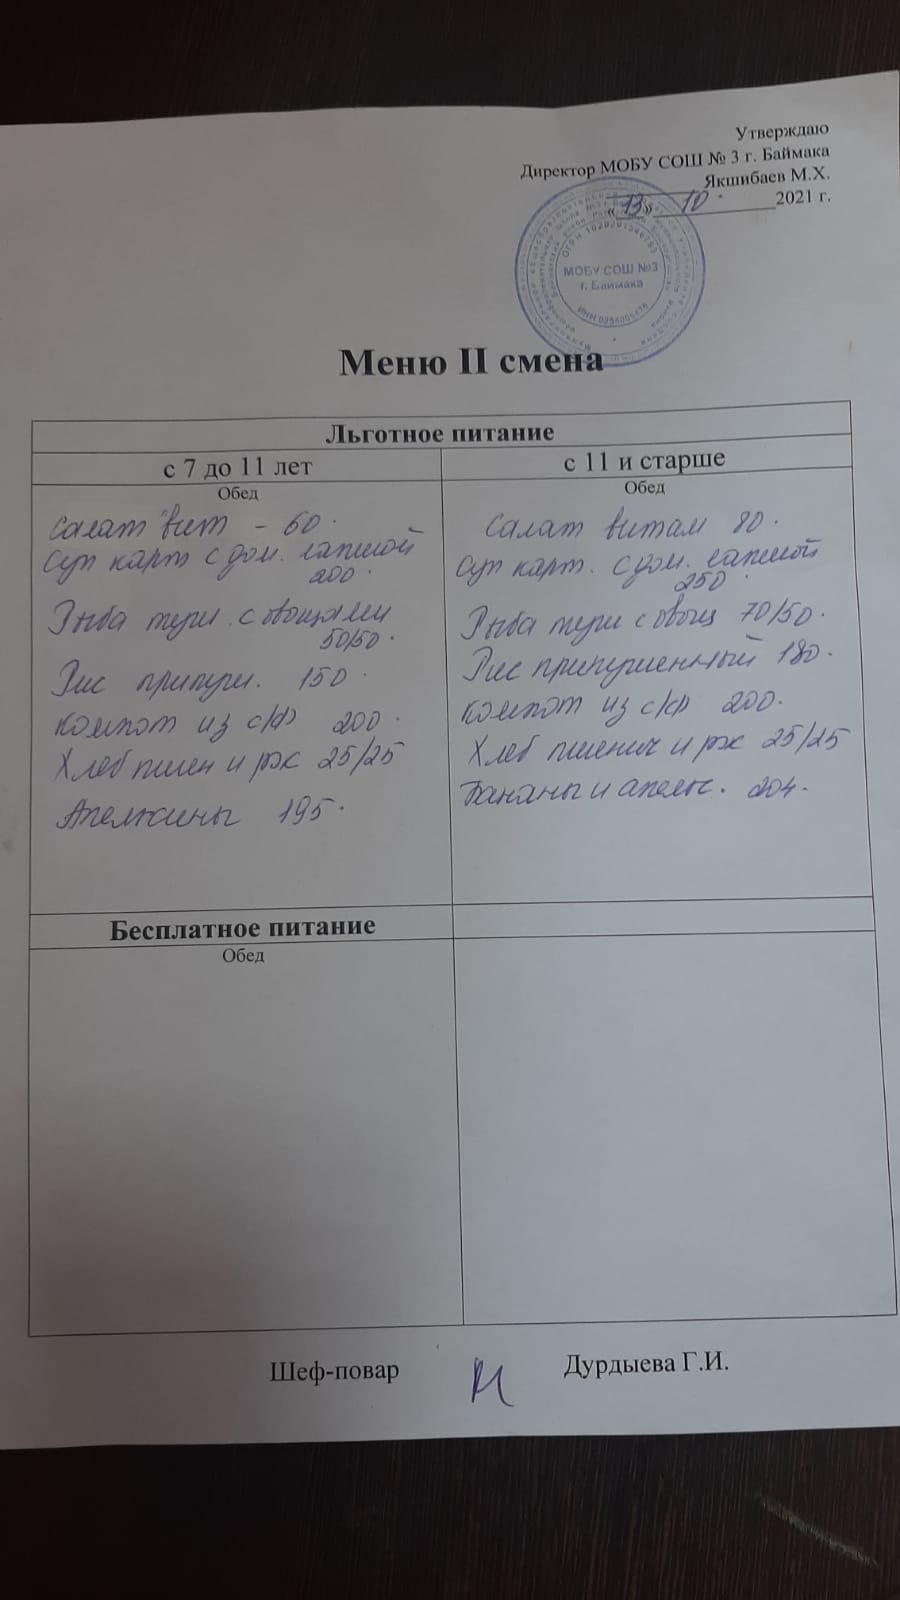 Утверждаю
Директор МОБУ СОШ № 3 г. Баймака
Якшибаев М.Х.
«13» 10 2021 г.
МОБУ СОШ №3
г. Баймака
Меню II смена
Льготное питание
с 7 до 11 лет
Обед
Салат вит – 60.
Суп карт с дом. лапшой
200.
Рыба туш. с овощами
50/50.
Рис припущ. 150.
Компот из с/ф 200.
Хлеб пшен и рж 25/25
Апельсины 195.
с 11 и старше
Обед
Салат витам 80.
Суп карт. с дом. лапшой
250.
Рыба туш с овощ 70/50.
Рис припущенный 180.
Компот из с/ф 200.
Хлеб пшенич и рж 25/25
Бананы и апельс. 204.
Бесплатное питание
Обед
Шеф-повар
Дурдыева Г.И.